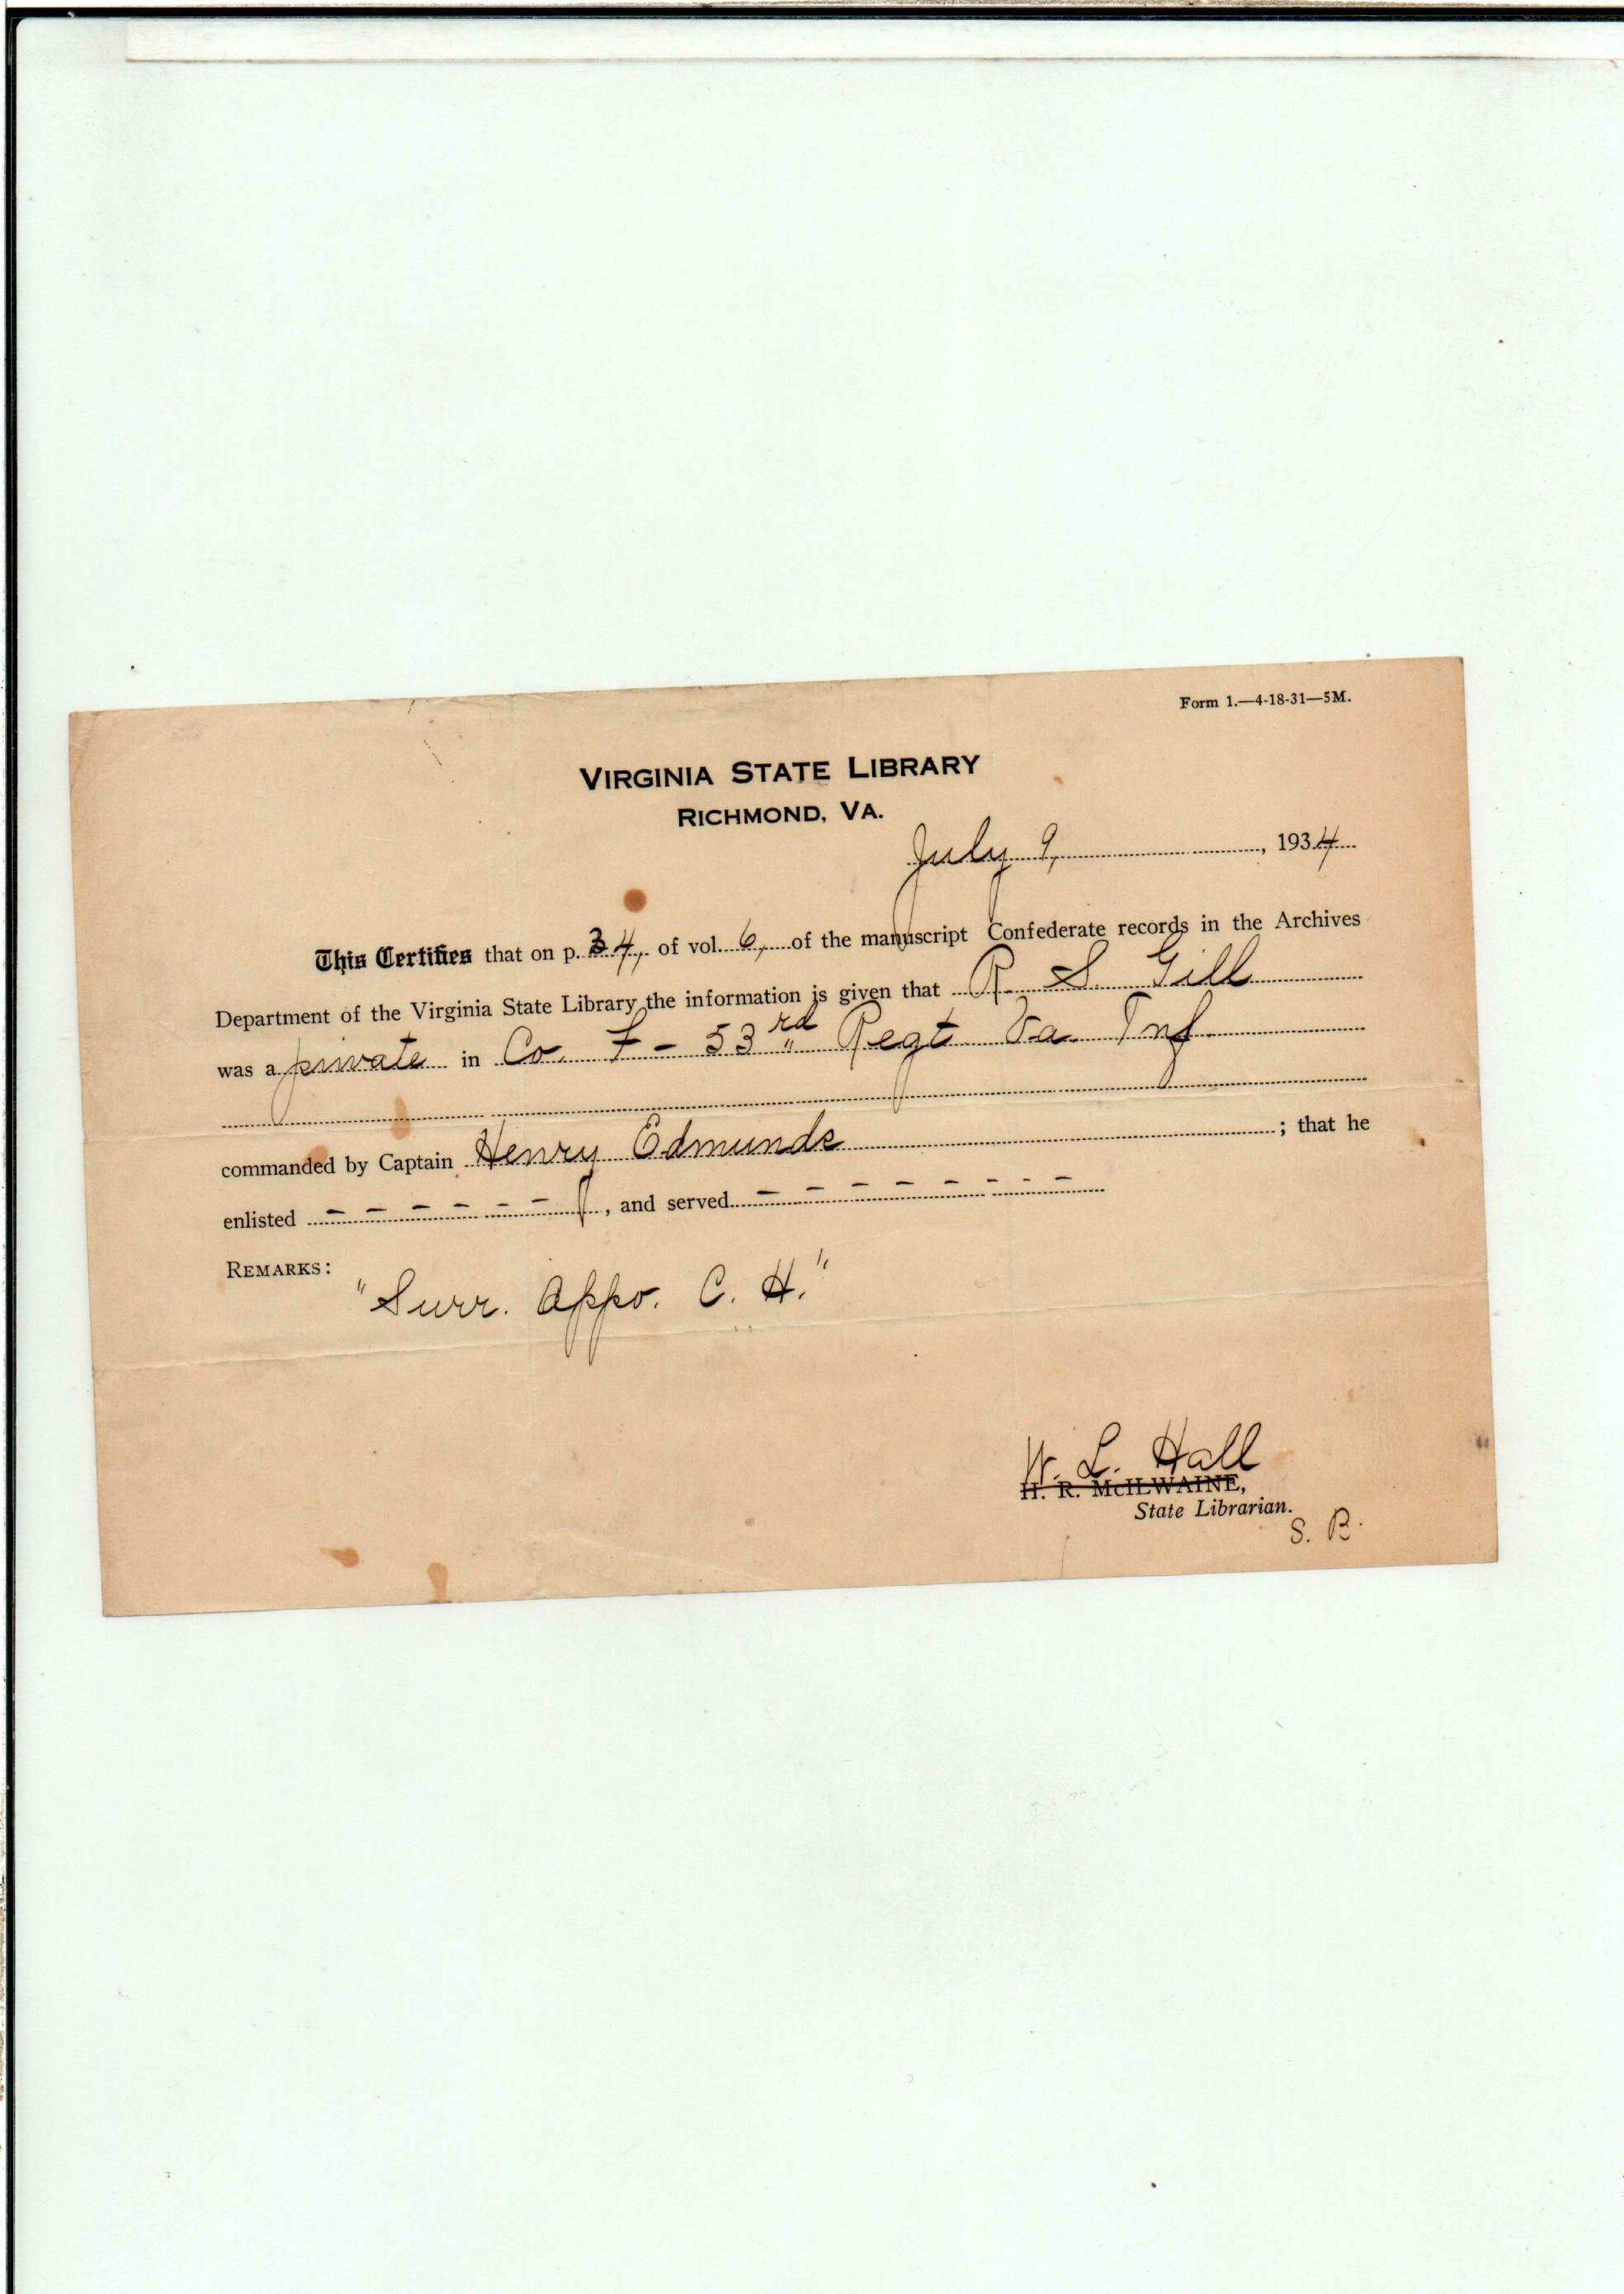 Form 1.—4-18-31—5M.
VIRGINIA STATE LIBRARY
RICHMOND, VA.
July 9, , 1934
This Certifies that on p. 34, of vol. 6, of the manuscript Confederate records in the Archives
Department of the Virginia State Library the information is given that R. S. Gill
was a private in Co. F - 53rd Regt Va. Inf.
commanded by Captain Henry Edmunds ; that he
enlisted - - - - - - , and served - - - - - - - -
REMARKS:
"Surr. Appo. C. H."
W. L. Hall
H. R. McILWAINE,
State Librarian.
S. B.